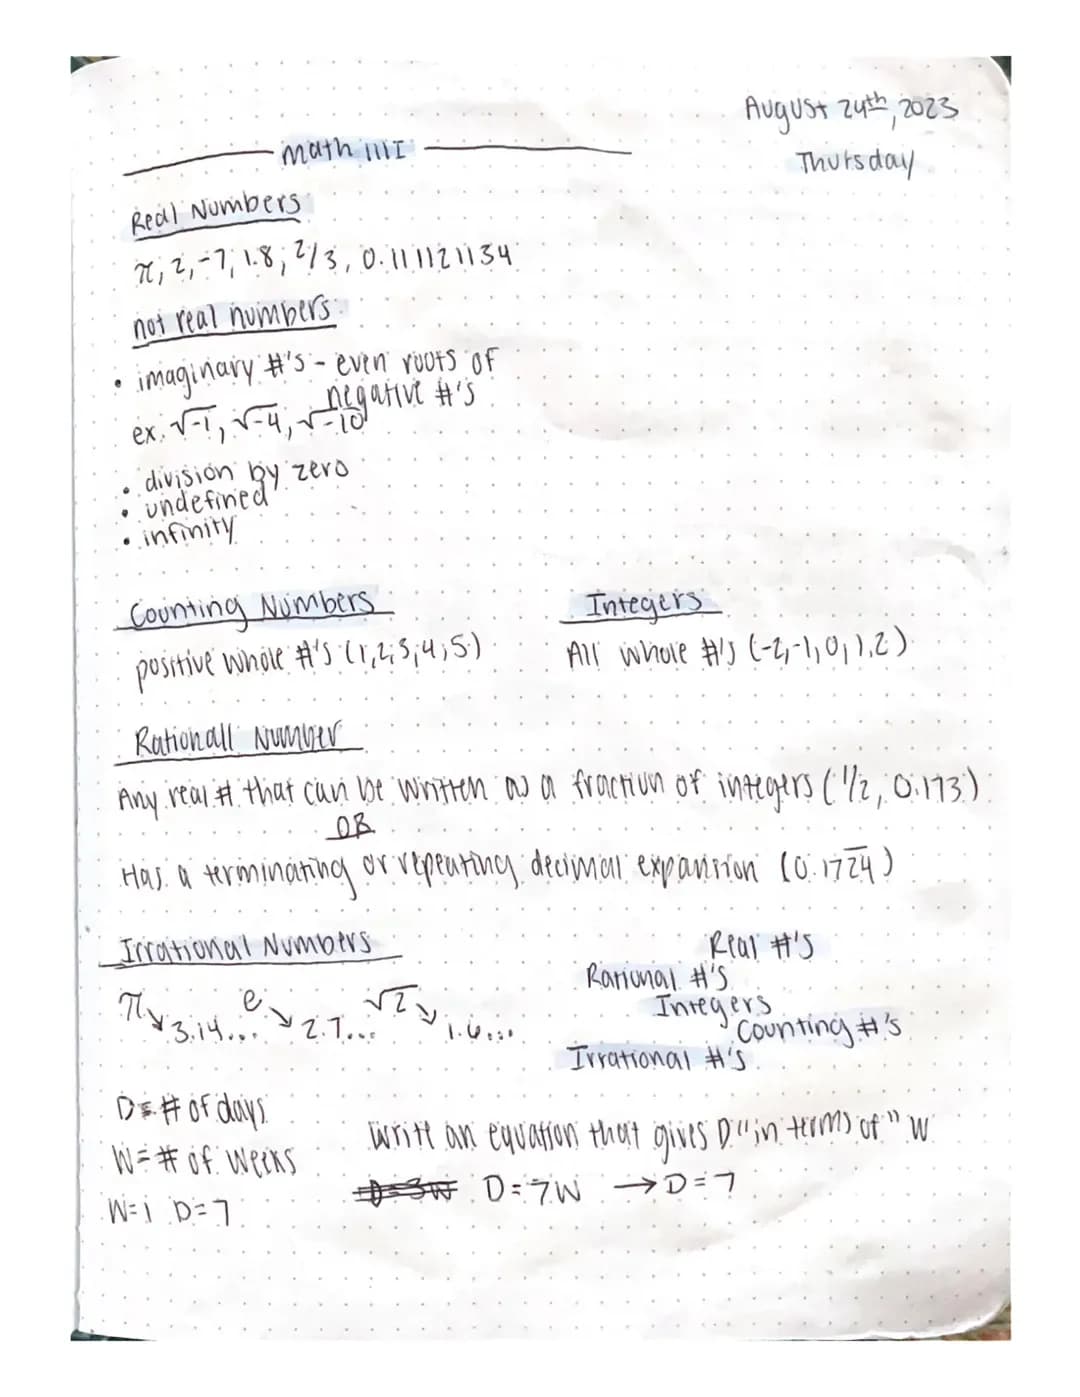 August 24th, 2023
Thursday
Math 1111
Real Numbers
π, 2, -7, 1.8, 2/3, 0.111121134
not real numbers
• imaginary #'s - even roots of
negative #'s
ex. √-1, √-4, √-10
• division by zero
• undefined
• infinity
Counting Numbers
positive whole #'s (1,2,3,4,5)
Integers
All whole #'s (-2,-1,0,1,2)
Rationall Number
Any real # that can be written as a fraction of integers (1/2, 0.173)
OR
Has a terminating or repeating decimal expansion (0.172̅4̅)
Irrational Numbers
π e √2
3.14... 2.7... 1.6...
Real #'s
Rational #'s
Integers
Counting #'s
Irrational #'s
D = # of days
W = # of weeks
W=1 D=7
Write an equation that gives D "in terms of" W
D=3W D=7W → D=7